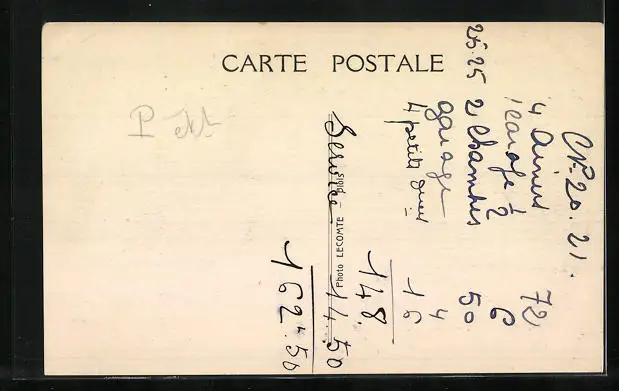 CARTE POSTALE
Photo LECOMTE Blois
Ch. 20. 21.
4 diners 72
1 carafe ½ 6
25.25 2 chambres 50
garage 4
4 petits dej 16
148
Service 14.50
162.50
P